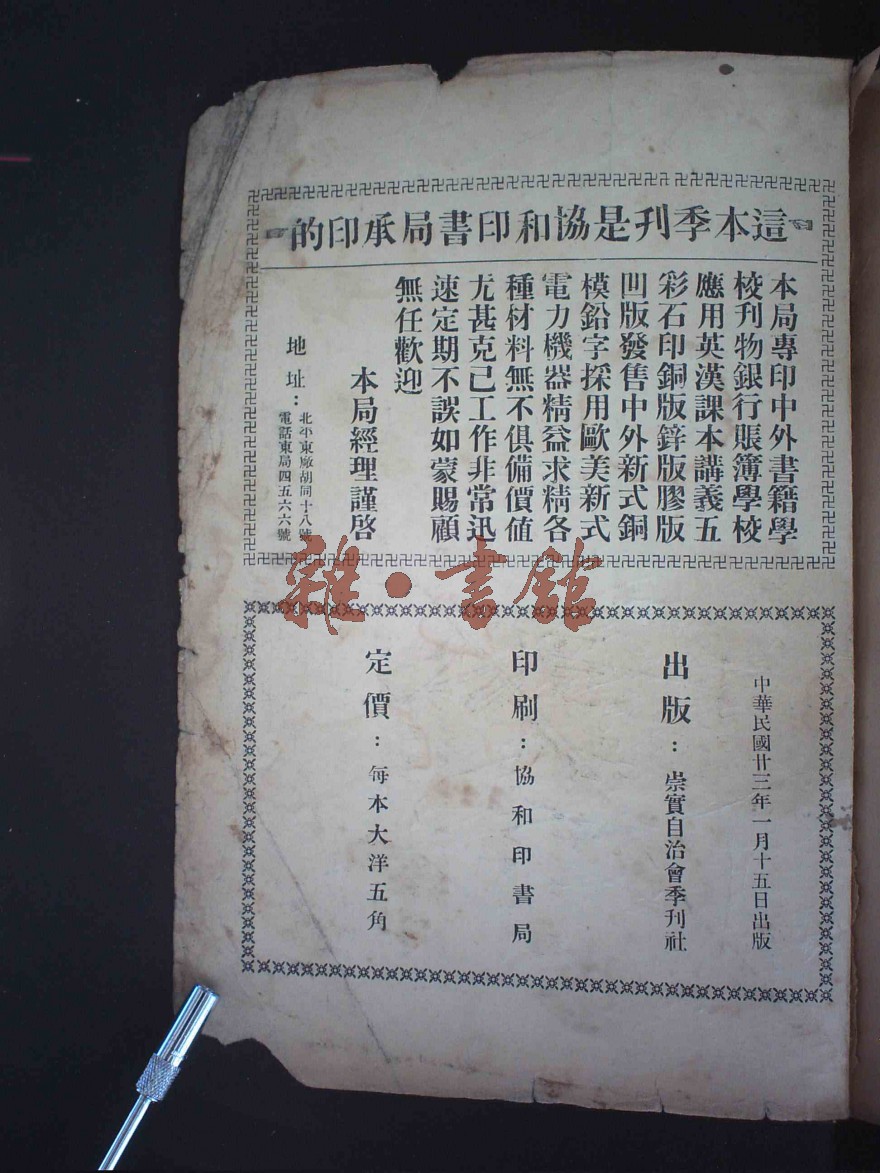 這本季刋是協和印書局承印的
本局專印中外書籍學
校刋物銀行賬簿學校
應用英漢課本講義五
彩石印銅版鋅版膠版
凹版發售中外新式銅
模鉛字採用歐美新式
電力機器精益求精各
種材料無不俱備價值
尤甚克己工作非常迅
速定期不誤如蒙賜顧
無任歡迎
本局經理謹啓
地址：北平東廠胡同十八號
電話東局四五六六號
雜·書館
中華民國廿三年一月十五日出版
出版：崇實自治會季刋社
印刷：協和印書局
定價：每本大洋五角